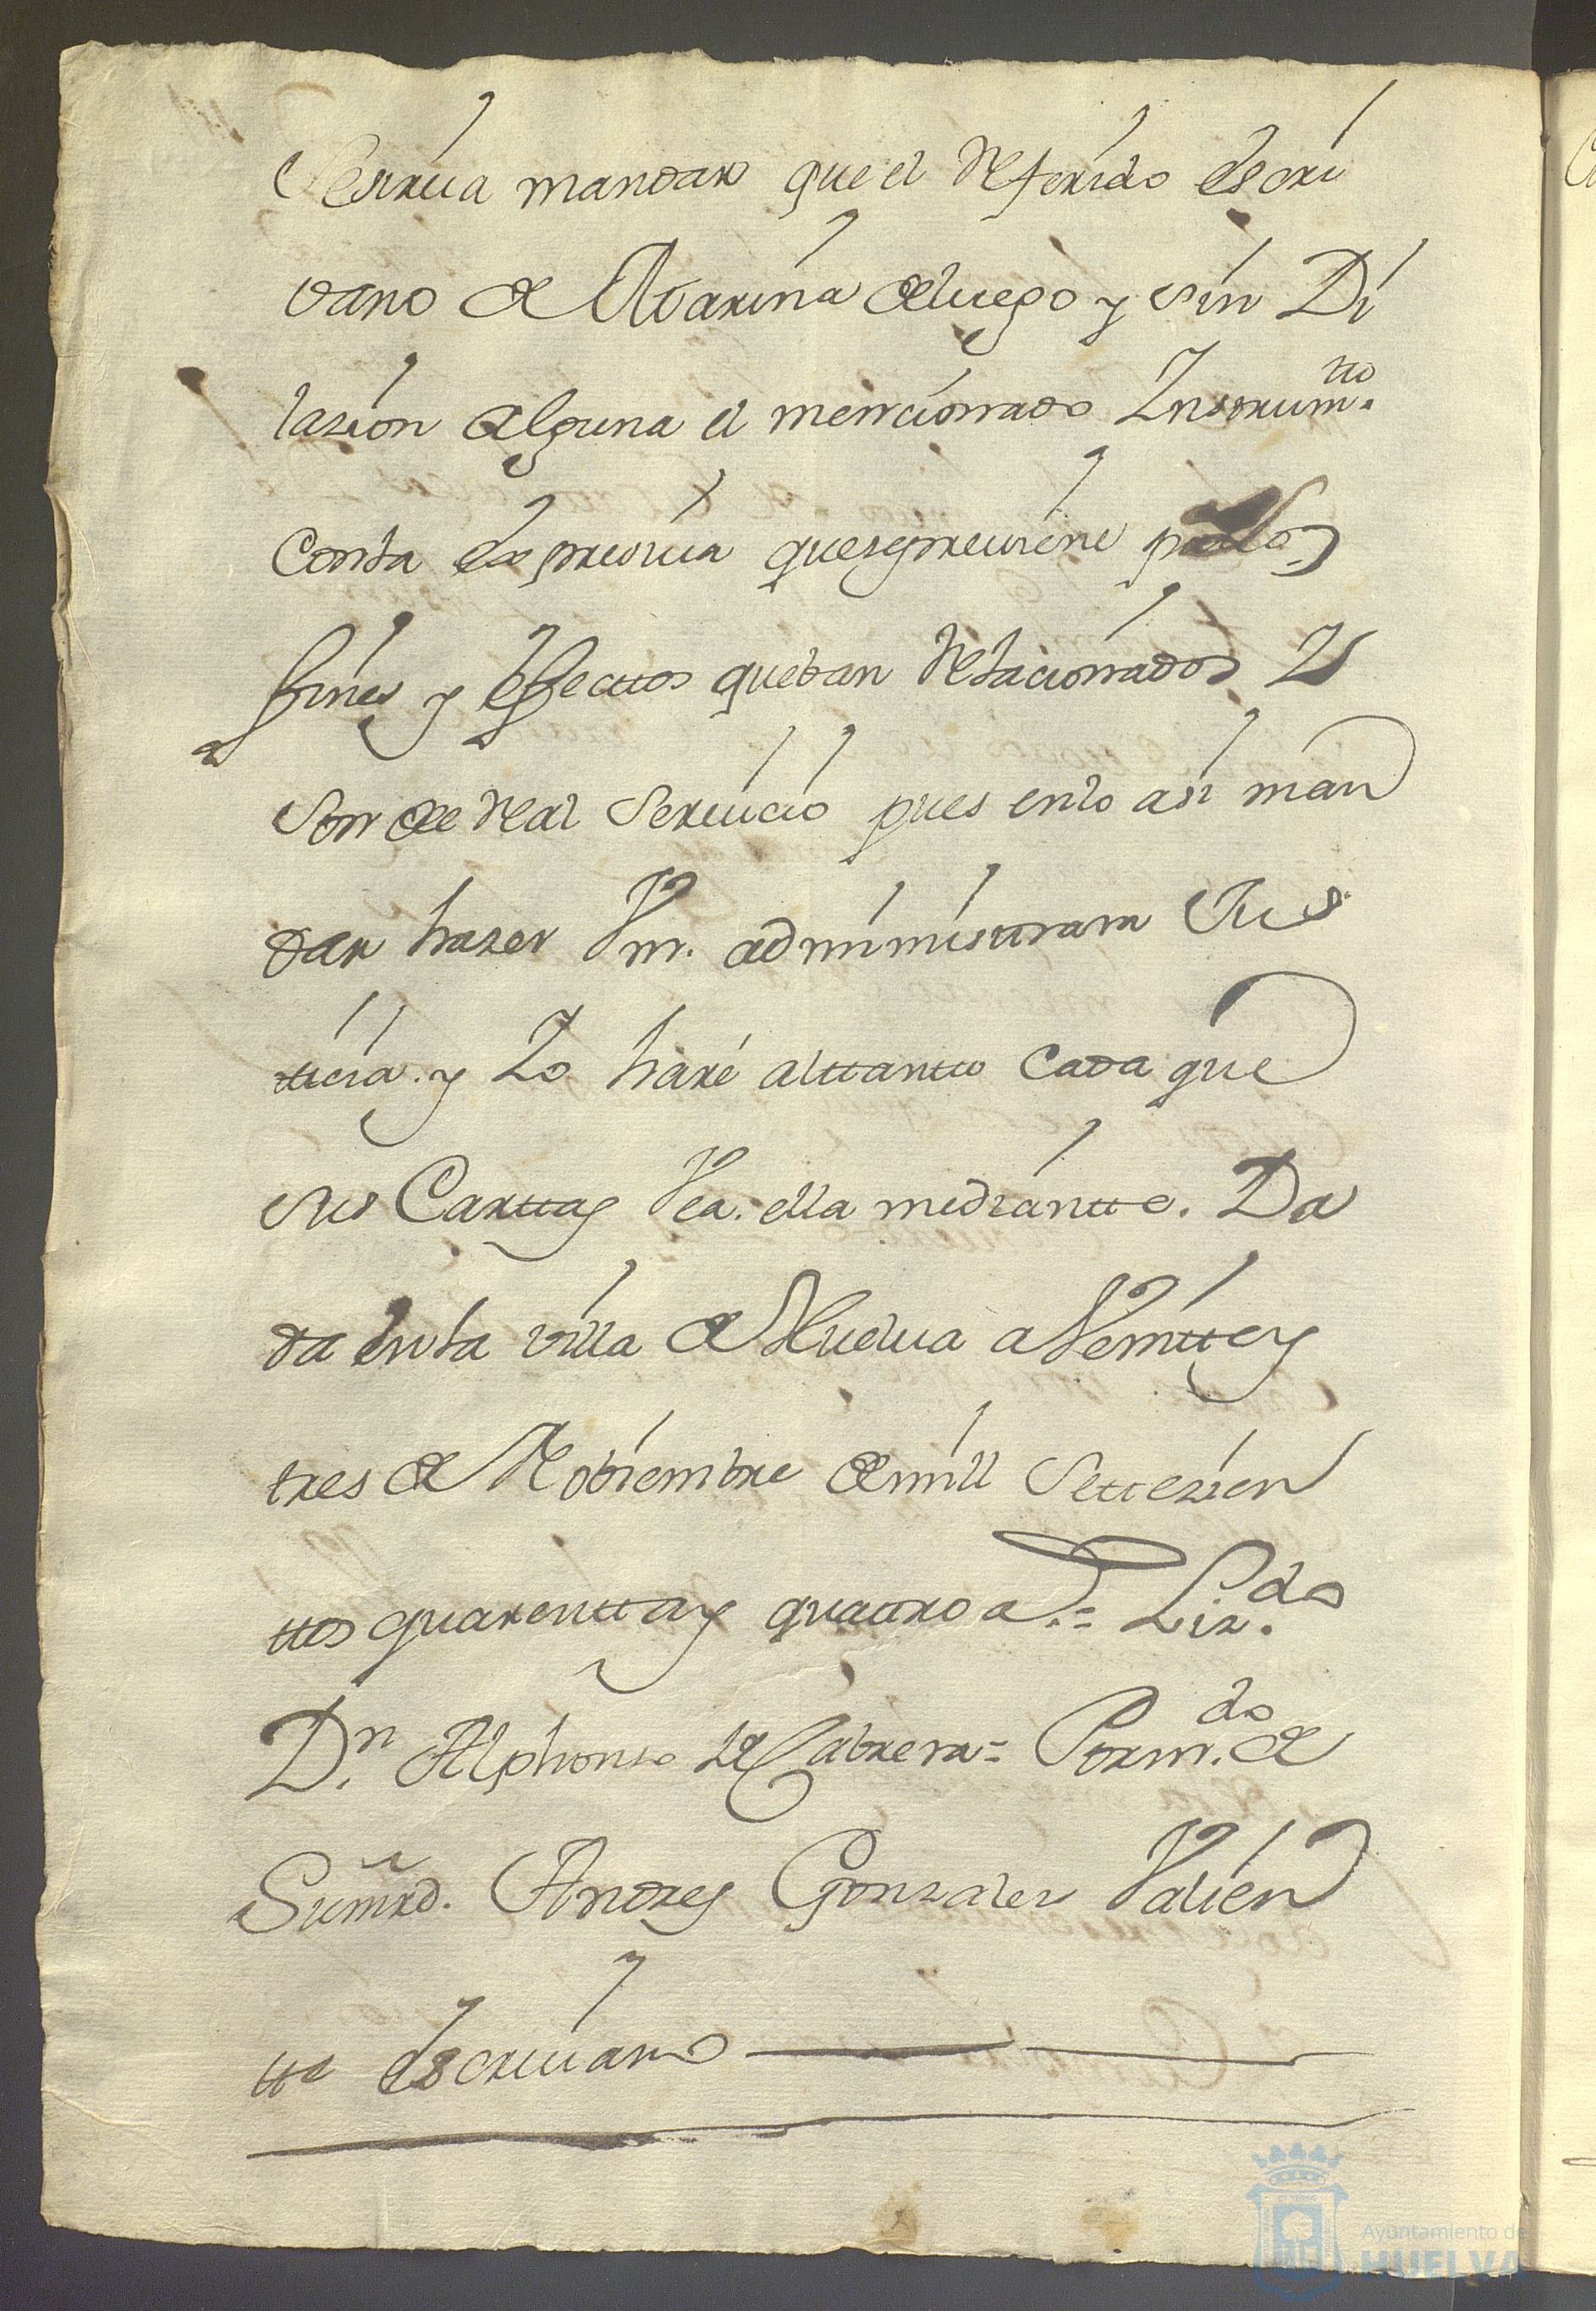 Se sirva mandar que el Referido escri
vano de Marina de luego y sin Di
lazion alguna el mencionado Instrum.tto
con la expressiva que se previene para los
fines y effecttos que ban Relacionados Y
son de Real Servicio pues en lo asi man
dar hazer Vm. administrara Jus
tticia. y Yo haré al ttantto cada que
sus Carttas Vea. ella mediantte. Da
da en la villa de Huelva a Veintte y
tres de Nobiembre de mill Settezien
ttos quarentta y quattro a.s = Liz.do
D.n Alphonso de Cabrera = Por m.do de
Su mrd. Andres Gonzalez Valien
tte escrivano
Ayuntamiento de
HUELVA